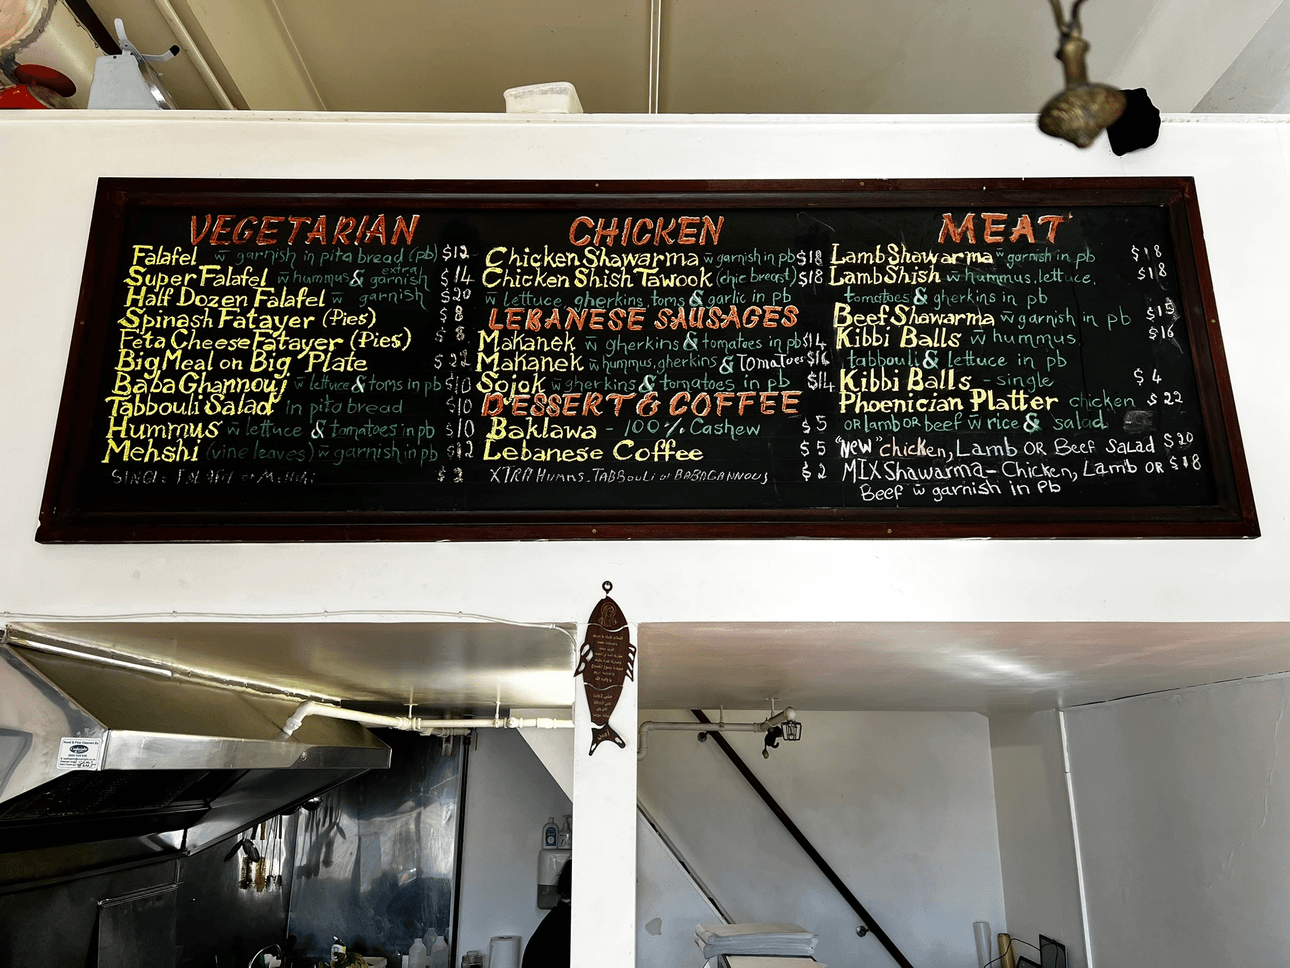 VEGETARIAN
Falafel w̄ garnish in pita bread (pb) $12
Super Falafel w̄ hummus & extra garnish $14
Half Dozen Falafel w̄ garnish $20
Spinash Fatayer (Pies) $8
Feta Cheese Fatayer (Pies) $8
Big Meal on Big Plate $22
Baba Ghannouj w̄ lettuce & toms in pb $10
Tabbouli Salad in pita bread $10
Hummus w̄ lettuce & tomatoes in pb $10
Mehshi (vine leaves) w̄ garnish in pb $12
SINGLE $2
CHICKEN
Chicken Shawarma w̄ garnish in pb $18
Chicken Shish Tawook (chic breast) $18
w̄ lettuce, gherkins, toms & garlic in pb
LEBANESE SAUSAGES
Makanek w̄ gherkins & tomatoes in pb $14
Makanek w̄ hummus, gherkins & Tomatoes $16
Sojok w̄ gherkins & tomatoes in pb $14
DESSERT & COFFEE
Baklawa - 100% Cashew $5
Lebanese Coffee $5
XTRA Humms, TABBouLi or BABAGANNOUJ $2
MEAT
Lamb Shawarma w̄ garnish in pb $18
Lamb Shish w̄ hummus, lettuce, $18
tomatoes & gherkins in pb
Beef Shawarma w̄ garnish in pb $15
Kibbi Balls w̄ hummus $16
tabbouli & lettuce in pb
Kibbi Balls - single $4
Phoenician Platter chicken $22
or lamb OR beef w̄ rice & salad
"New" chicken, Lamb OR Beef Salad $20
MIX Shawarma - Chicken, Lamb OR $18
Beef w̄ garnish in Pb